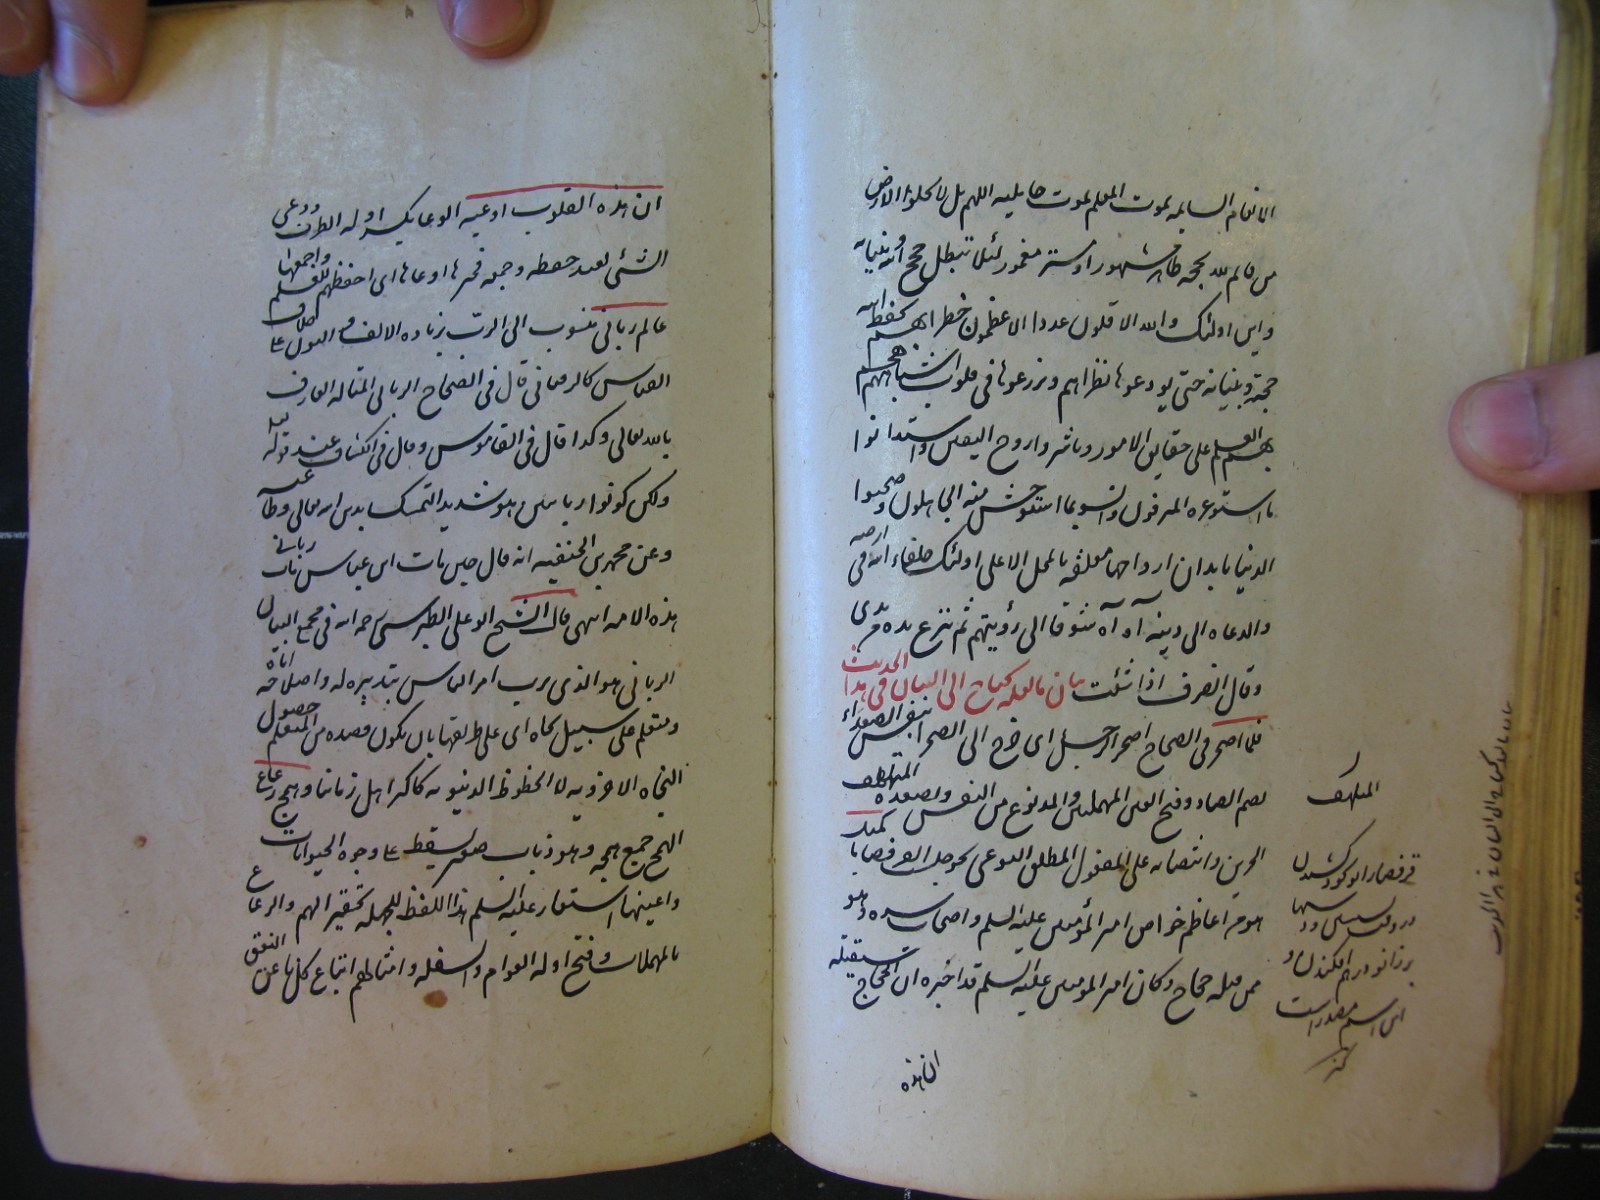 الانعام السايمه يموت العلم بموت حامليه اللهم بلى لا تخلوا الارض
من قائم لله بحجه ظاهر مشهور او مستتر مغمور لئلا تبطل حجج الله وبيناته
واين اولئك والله الاقلون عددا الاعظمون خطرا بهم يحفظ الله
حججه وبيناته حتى يودعوها نظراءهم ويزرعوها فى قلوب اشباههم هجم
بهم العلم على حقايق الامور وباشروا روح اليقين واستلانوا
ما استوعره المترفون وانسوا بما استوحش منه الجاهلون وصحبوا
الدنيا بابدان ارواحها معلقه بالمحل الاعلى اولئك خلفاء الله فى ارضه
والدعاه الى دينه آه آه شوقا الى رؤيتهم ثم نزع يده من يدى
وقال انصرف اذا شئت بيان ما لعله يحتاج الى البيان فى هذا الحديث
فلما اصحر فى الصحاح اصحر الرجل اى خرج الى الصحراء تنفس الصعداء
بضم الصاد وفتح العين المهملتين والمد نوع من التنفس يصعده المتلهف
الحزين وانتصابه على المفعول المطلق النوعى نحو جلست القرفصا يا كميل
هو من اعاظم خواص امير المؤمنين عليه السلم واصحاب سره وهو
ممن قتله حجاج وكان امير المؤمنين عليه السلم قد اخبره ان الحجاج سيقتله
ان هذه
المتلهف
اى اسم مصدر است
كنز
ان هذه القلوب اوعيه الوعا بكسر اوله الظرف ووعى
الشئ يعيه حفظه وجمعه فخيرها اوعاها اى احفظهم للعلم واجمعها
عالم ربانى منسوب الى الرب بزياده الالف والنون على خلاف
القياس كالرقبانى قال فى الصحاح الربانى المتاله العارف
بالله تعالى وكذا قال فى القاموس وقال فى الكشاف عند قوله تعالى
ولكن كونوا ربانيين هو شديد التمسك بدين الله تعالى وطاعته
وعن محمد بن الحنفيه انه قال حين مات ابن عباس مات ربانى
هذه الامه انتهى قال الشيخ ابو على الطبرسى رحمه الله فى مجمع البيان
الربانى هو الذى يرب امر الناس بتدبيره له واصلاحه اياه
ومتعلم على سبيل نجاه اى على طريقها بان يكون قصده من التعلم حصول
النجاه الاخرويه لا الحظوظ الدنيويه كاكثر اهل زماننا وهمج رعاع
الهمج جمع همجه وهو ذباب صغير يسقط على وجوه الحيوانات
واعينها استعار عليه السلم هذا اللفظ للجهله تحقيرا لهم والرعاع
بالمهملات وفتح اوله العوام والسفله وامثالهم اتباع كل ناعق النعق